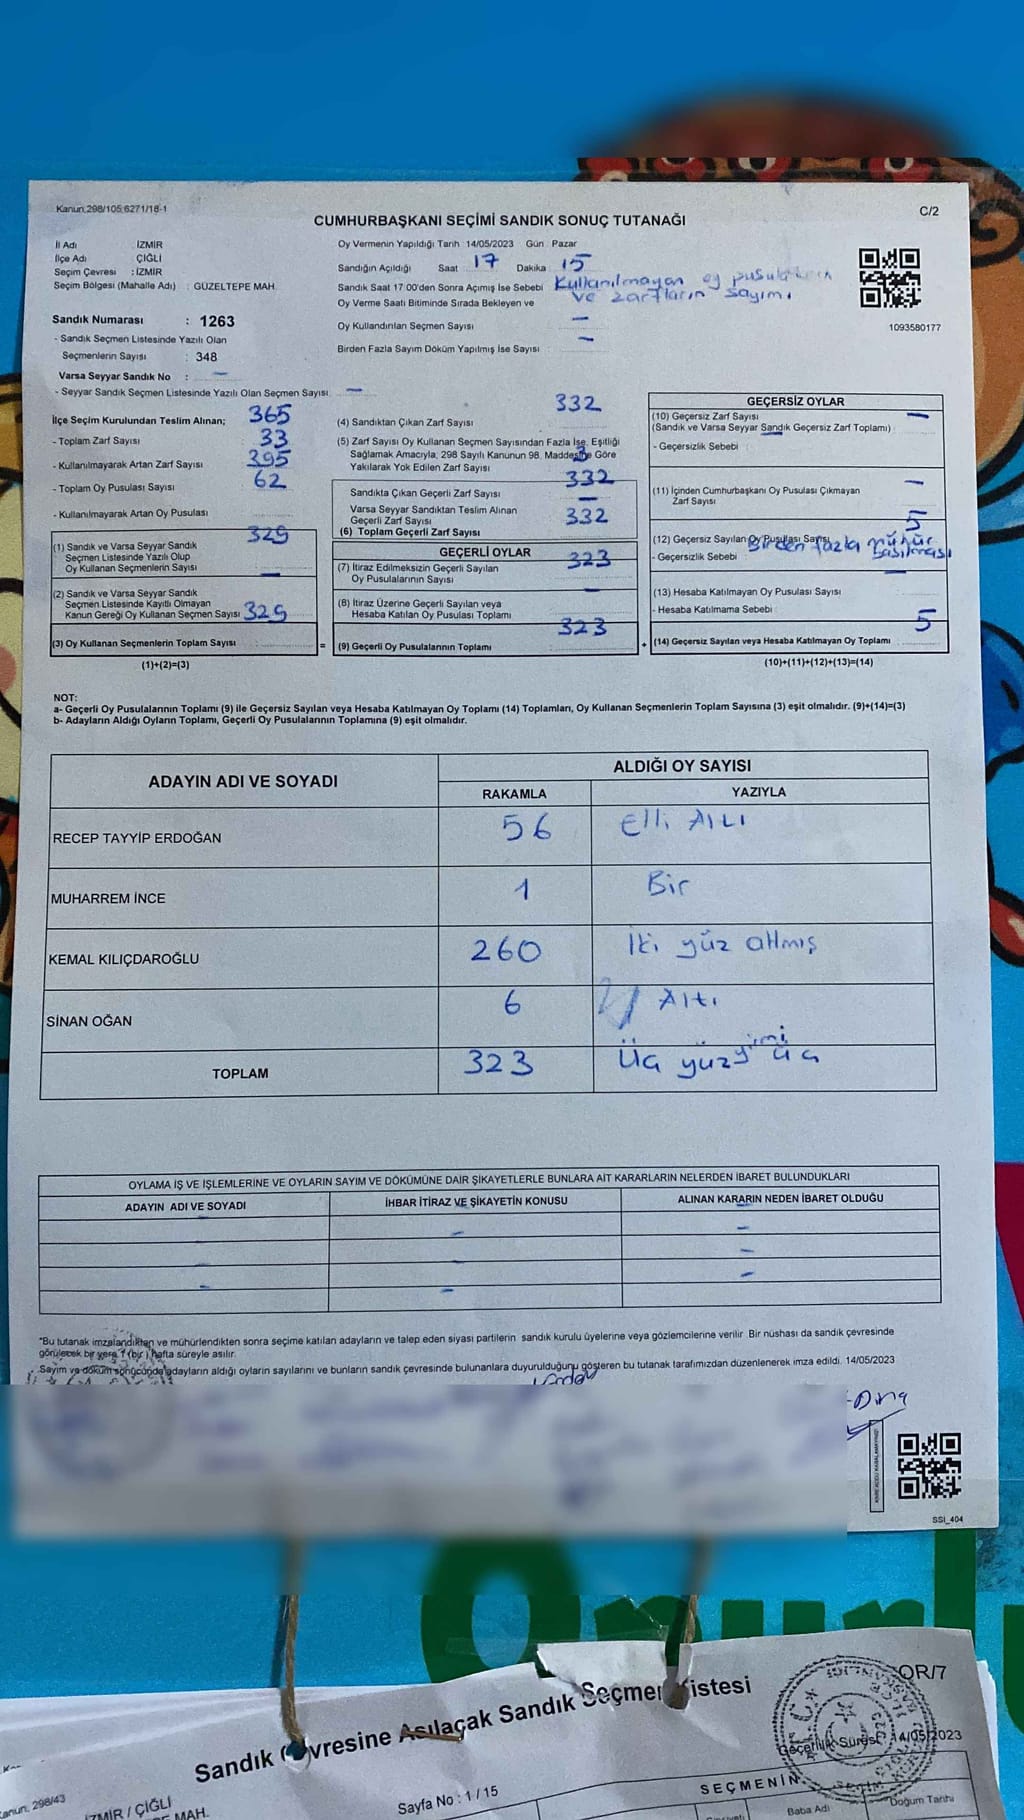 Kanun,298/105,6271/18-1
C/2
CUMHURBAŞKANI SEÇİMİ SANDIK SONUÇ TUTANAĞI
İl Adı : İZMİR
İlçe Adı : ÇİĞLİ
Seçim Çevresi : İZMİR
Seçim Bölgesi (Mahalle Adı) : GÜZELTEPE MAH.
Sandık Numarası : 1263
- Sandık Seçmen Listesinde Yazılı Olan
Seçmenlerin Sayısı : 348
Varsa Seyyar Sandık No : –
- Seyyar Sandık Seçmen Listesinde Yazılı Olan Seçmen Sayısı : –
Oy Vermenin Yapıldığı Tarih 14/05/2023 Gün : Pazar
Sandığın Açıldığı Saat 17 Dakika 15
Sandık Saat 17:00'den Sonra Açımış İse Sebebi Kullanılmayan oy pusulalarının
ve zarfların sayımı
Oy Verme Saati Bitiminde Sırada Bekleyen ve
Oy Kullandırılan Seçmen Sayısı –
Birden Fazla Sayım Döküm Yapılmış İse Sayısı : –
1093580177
İlçe Seçim Kurulundan Teslim Alınan; 365
- Toplam Zarf Sayısı : 33
- Kullanılmayarak Artan Zarf Sayısı : 395
- Toplam Oy Pusulası Sayısı : 62
- Kullanılmayarak Artan Oy Pusulası
329
(1) Sandık ve Varsa Seyyar Sandık
Seçmen Listesinde Yazılı Olup
Oy Kullanan Seçmenlerin Sayısı –
(2) Sandık ve Varsa Seyyar Sandık
Seçmen Listesinde Kayıtlı Olmayan
Kanun Gereği Oy Kullanan Seçmen Sayısı 329
(3) Oy Kullanan Seçmenlerin Toplam Sayısı =
(1)+(2)=(3)
332
(4) Sandıktan Çıkan Zarf Sayısı
(5) Zarf Sayısı Oy Kullanan Seçmen Sayısından Fazla İse, Eşitliği
Sağlamak Amacıyla, 298 Sayılı Kanunun 98. Maddesine Göre
Yakılarak Yok Edilen Zarf Sayısı 3
332
Sandıkta Çıkan Geçerli Zarf Sayısı –
Varsa Seyyar Sandıktan Teslim Alınan
Geçerli Zarf Sayısı 332
(6) Toplam Geçerli Zarf Sayısı
GEÇERLİ OYLAR
323
(7) İtiraz Edilmeksizin Geçerli Sayılan
Oy Pusulalarının Sayısı –
(8) İtiraz Üzerine Geçerli Sayılan veya
Hesaba Katılan Oy Pusulası Toplamı
323
(9) Geçerli Oy Pusulalarının Toplamı +
GEÇERSİZ OYLAR
(10) Geçersiz Zarf Sayısı –
(Sandık ve Varsa Seyyar Sandık Geçersiz Zarf Toplamı) :
- Geçersizlik Sebebi :
(11) İçinden Cumhurbaşkanı Oy Pusulası Çıkmayan –
Zarf Sayısı
5
(12) Geçersiz Sayılan Oy Pusulası Sayısı
- Geçersizlik Sebebi : Birden fazla mühür
basılması
–
(13) Hesaba Katılmayan Oy Pusulası Sayısı
- Hesaba Katılmama Sebebi :
5
(14) Geçersiz Sayılan veya Hesaba Katılmayan Oy Toplamı
(10)+(11)+(12)+(13)=(14)
NOT:
a- Geçerli Oy Pusulalarının Toplamı (9) ile Geçersiz Sayılan veya Hesaba Katılmayan Oy Toplamı (14) Toplamları, Oy Kullanan Seçmenlerin Toplam Sayısına (3) eşit olmalıdır. (9)+(14)=(3)
b- Adayların Aldığı Oyların Toplamı, Geçerli Oy Pusulalarının Toplamına (9) eşit olmalıdır.
ADAYIN ADI VE SOYADI ALDIĞI OY SAYISI
RAKAMLA YAZIYLA
RECEP TAYYİP ERDOĞAN 56 Elli Altı
MUHARREM İNCE 1 Bir
KEMAL KILIÇDAROĞLU 260 İki yüz altmış
SİNAN OĞAN 6 Altı
TOPLAM 323 Üç yüz yirmi üç
OYLAMA İŞ VE İŞLEMLERİNE VE OYLARIN SAYIM VE DÖKÜMÜNE DAİR ŞİKAYETLERLE BUNLARA AİT KARARLARIN NELERDEN İBARET BULUNDUKLARI
ADAYIN ADI VE SOYADI İHBAR İTİRAZ VE ŞİKAYETİN KONUSU ALINAN KARARIN NEDEN İBARET OLDUĞU
*Bu tutanak imzalandıktan ve mühürlendikten sonra seçime katılan adayların ve talep eden siyasi partilerin sandık kurulu üyelerine veya gözlemcilerine verilir. Bir nüshası da sandık çevresinde
görülecek bir yere 1 (bir ) hafta süreyle asılır.
Sayım ve döküm sonucunda adayların aldığı oyların sayılarını ve bunların sandık çevresinde bulunanlara duyurulduğunu gösteren bu tutanak tarafımızdan düzenlenerek imza edildi. 14/05/2023
SSI_404
OR/7
Sandık Çevresine Asılacak Sandık Seçmen Listesi
Geçerlilik Süresi : 14/05/2023
Kanun, 298/43
İZMİR / ÇİĞLİ
MAH.
Sayfa No : 1 / 15
SEÇMENİN
Baba Adı
Doğum Tarihi